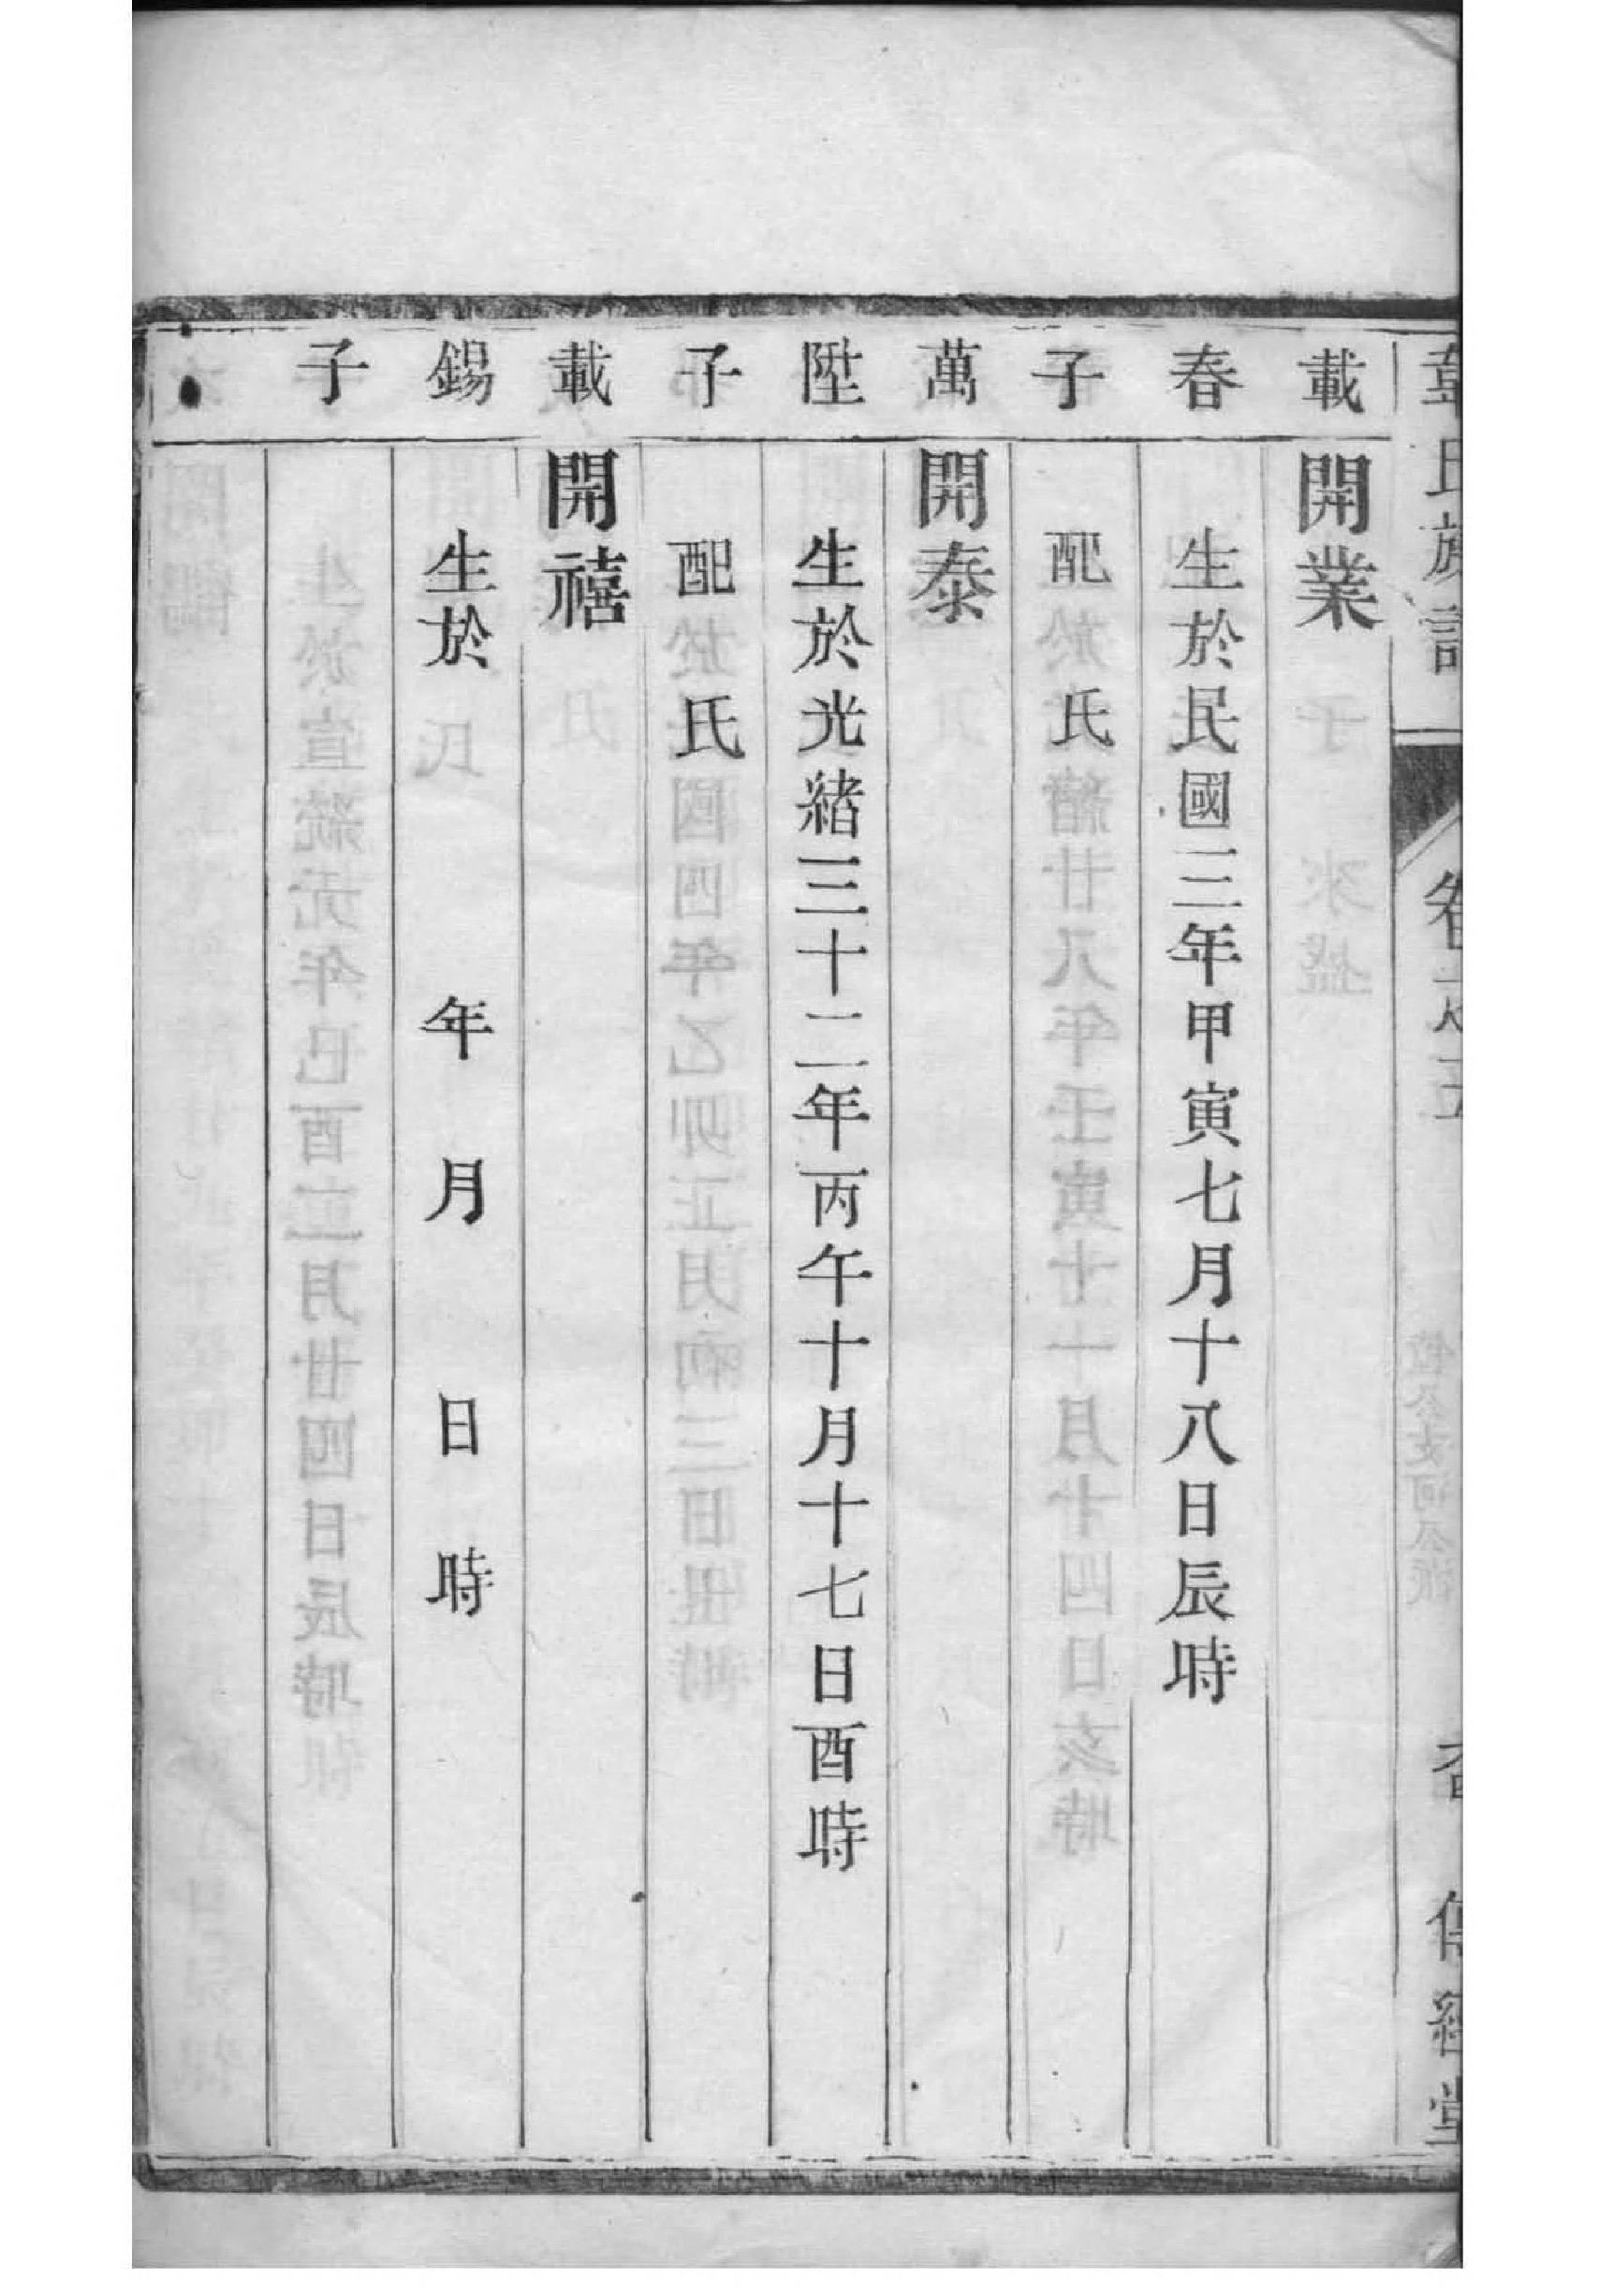 氏族譜 卷 傳經堂
載春子
開業
生於民國三年甲寅七月十八日辰時
配 氏
萬陞子
開泰
生於光緒三十二年丙午十月十七日酉時
配 氏
載錫子
開禧
生於 年 月 日 時